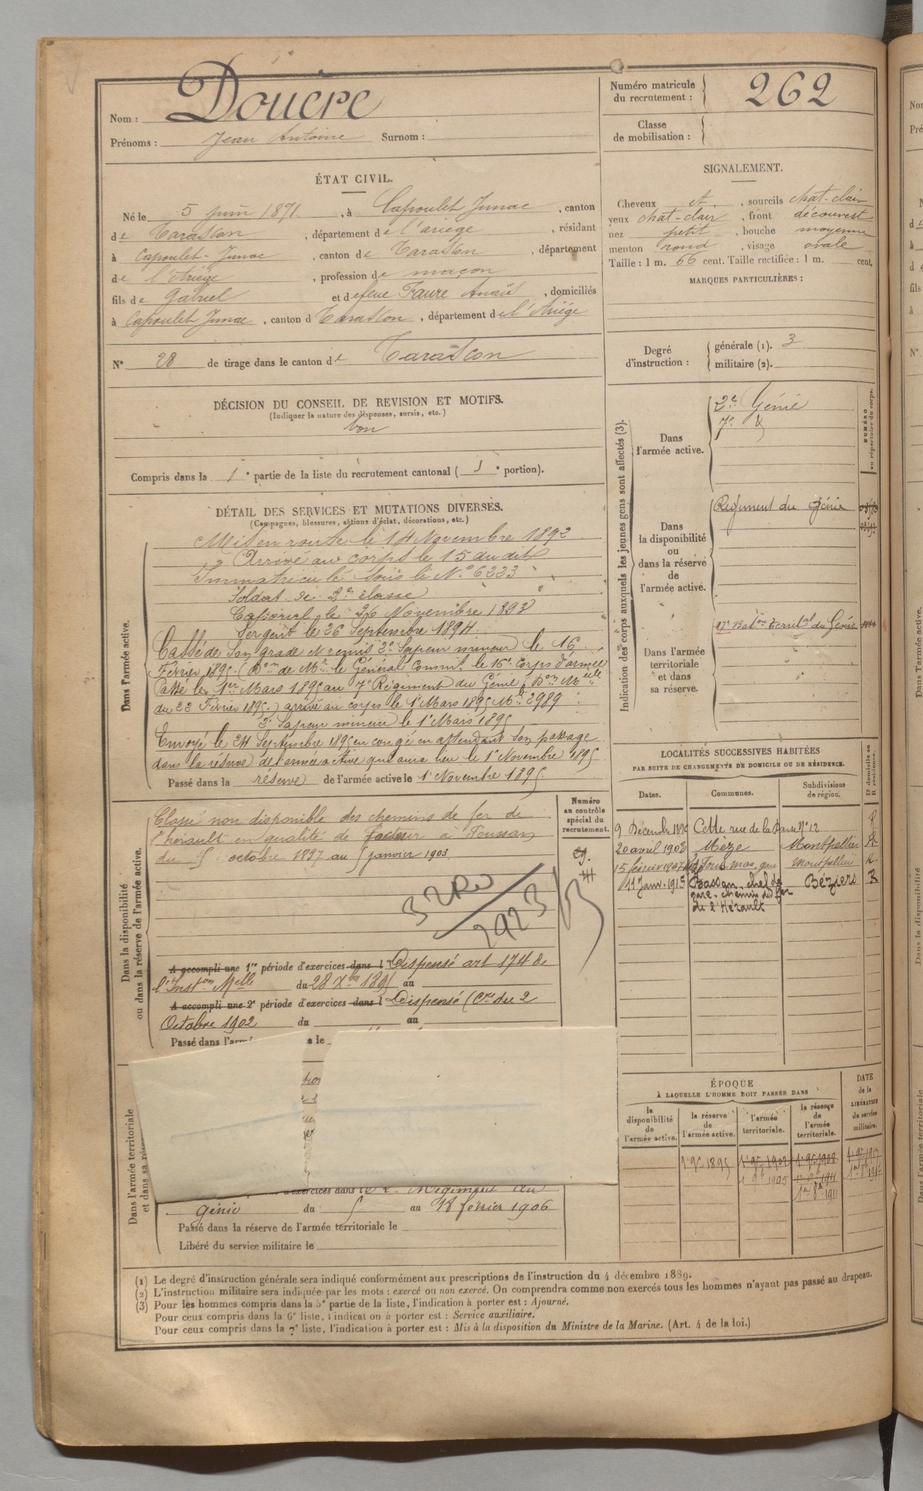 Nom : Douère
Prénoms : Jean Antoine Surnom :
Numéro matricule du recrutement : 262
Classe de mobilisation :
ÉTAT CIVIL.
Né le 5 juin 1871, à Capoulet Junac, canton
de Tarascon, département de l'ariège, résidant
à Capoulet-Junac, canton de Tarascon, département
de l'Ariège, profession de maçon
fils de Gabriel et de feue Faure Anaïs, domiciliés
à Capoulet Junac, canton d Tarascon, département de l'Ariège
N° 28 de tirage dans le canton de Tarascon
SIGNALEMENT.
Cheveux et, sourcils chat-clair
yeux chat-clair, front découvert
nez petit, bouche moyenne
menton rond, visage ovale
Taille : 1 m. 66 cent. Taille rectifiée : 1 m. cent.
MARQUES PARTICULIÈRES :
Degré d'instruction : générale (1). 3
militaire (2).
DÉCISION DU CONSEIL DE REVISION ET MOTIFS.
(Indiquer la nature des dispenses, sursis, etc.)
bon
Compris dans la 1e partie de la liste du recrutement cantonal ( 1e portion).
DÉTAIL DES SERVICES ET MUTATIONS DIVERSES.
(Campagnes, blessures, actions d'éclat, décorations, etc.)
Dans l'armée active.
Mis en route le 14 Novembre 1892
Arrivé au corps le 15 du dit
Immatriculé sous le N° 6233
Soldat de 2e classe
Caporal le 26 Novembre 1893
Sergent le 26 Septembre 1894
Cassé de son grade et remis 2e Sapeur mineur le 16
Février 1895 (Don de Mr le Général Commt le 16e Corps d'armée
Passé le 1er Mars 1895 au 7e Régiment du Génie
du 22 Février 1895) arrivé au corps le 1er Mars 1895 No 2989
2e Sapeur mineur le 1er Mars 1895
Envoyé le 24 Septembre 1895 en congé en attendant son passage
dans la réserve de l'armée active qui aura lieu le 1er Novembre 1895
Passé dans la réserve de l'armée active le 1er Novembre 1895
Indication des corps auxquels les jeunes gens sont affectés (3).
NUMÉRO au répertoire du corps.
Dans l'armée active.
2e Génie
7e
Dans la disponibilité ou dans la réserve de l'armée active.
Régiment du génie
Dans l'armée territoriale et dans sa réserve.
17e Baton Territal du Génie
LOCALITÉS SUCCESSIVES HABITÉES
PAR SUITE DE CHANGEMENTS DE DOMICILE OU DE RÉSIDENCE.
Dates. Communes. Subdivisions de région. D domicile ou R résidence.
9 Décembre Cette rue de la n° 12
20 avril 1903 Mèze Montpellier R
15 février 1907 Montpellier R
11 Janv. 1915 Bassan, chef de gare, chemin de fer de l'Hérault Béziers R
Dans la disponibilité ou dans la réserve de l'armée active.
Numéro au contrôle spécial du recrutement.
Classé non disponible des chemins de fer de
l'hérault en qualité de facteur à Poussan
du 5 octobre 1897 au 5 janvier 1903
2923
A accompli une 1re période d'exercices dans l Dispensé art 174 de
l'Inston Melle du 28 Xbre 1895 au
A accompli une 2e période d'exercices dans l Dispensé (Cre du 2
Octobre 1902 du au
Passé dans l'arm
a le
Dans l'armée territoriale et dans sa rés
exercices dans le 2e Régiment du
génie du 5 au 18 février 1906
Passé dans la réserve de l'armée territoriale le
Libéré du service militaire le
ÉPOQUE
À LAQUELLE L'HOMME DOIT PASSER DANS
la disponibilité de l'armée active. la réserve de l'armée active. l'armée territoriale. la réserve de l'armée territoriale. DATE de la LIBÉRATION du service militaire.
1er 9bre 1895
(1) Le degré d'instruction générale sera indiqué conformément aux prescriptions de l'instruction du 4 décembre 1889.
(2) L'instruction militaire sera indiquée par les mots : exercé ou non exercé. On comprendra comme non exercés tous les hommes n'ayant pas passé au drapeau.
(3) Pour les hommes compris dans la 5e partie de la liste, l'indication à porter est : Ajourné.
Pour ceux compris dans la 6e liste, l'indication à porter est : Service auxiliaire.
Pour ceux compris dans la 7e liste, l'indication à porter est : Mis à la disposition du Ministre de la Marine. (Art. 4 de la loi.)